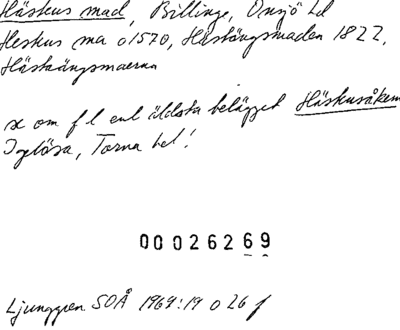 Häskus mad, Billinge, Onsjö hd
Heskus ma o1570, Hästängsmaden 1822,
Hästaängsmaerna
x om f l enl äldsta belägget Häskusåkern
Igelösa, Torna hd!
00026269
Ljunggren SOÅ 1969:19 o 26 f